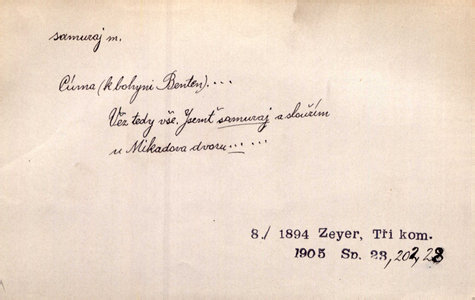 samuraj m.
Cúma (k bohyni Benten)....
Věz tedy vše. Jsemť samuraj a sloužím
u Mikadova dvoru......
8./ 1894 Zeyer, Tři kom.
1905 Sp. 23, 202, 28